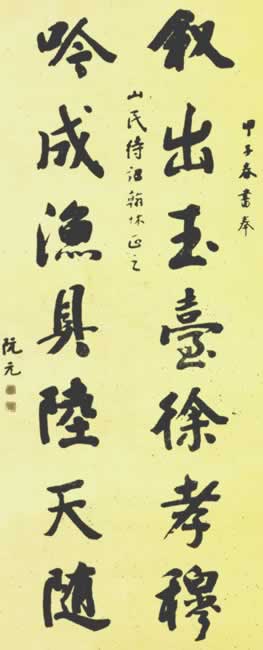 甲子春書奉
叙出玉臺徐孝穆
山民待詔翰林正之
吟成漁具陸天隨
阮元